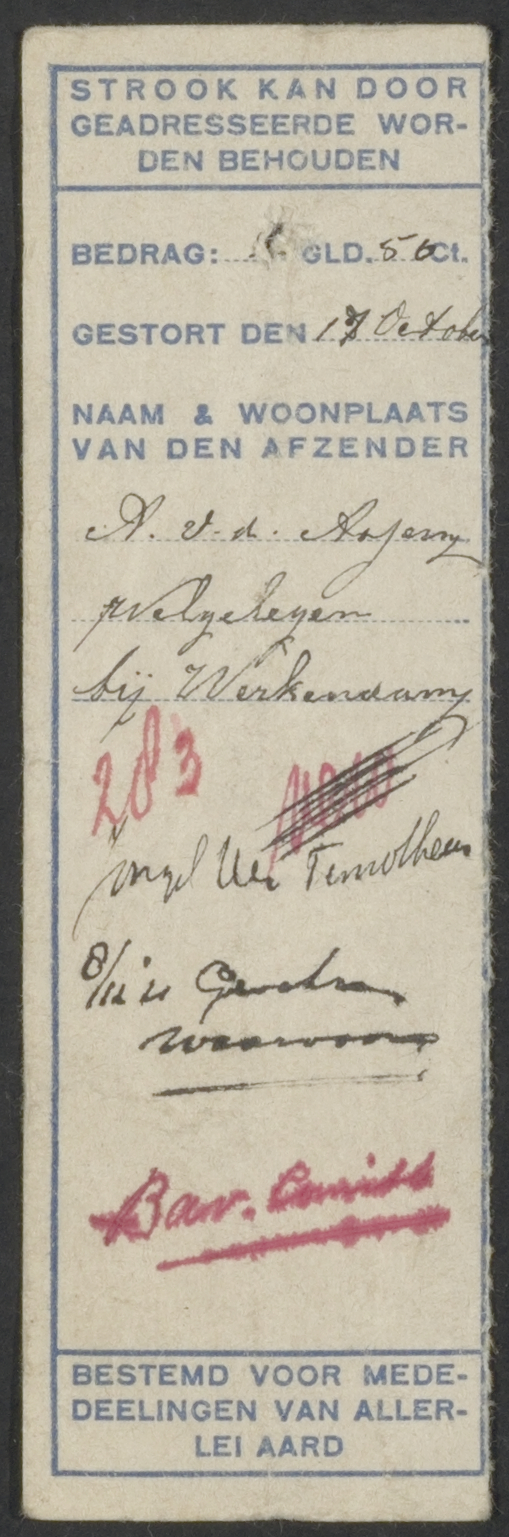 STROOK KAN DOOR
GEADRESSEERDE WOR-
DEN BEHOUDEN
BEDRAG: GLD. 50 Ct.
GESTORT DEN 17 October
NAAM & WOONPLAATS
VAN DEN AFZENDER
A. v. d.
Welgelegen
bij Werkendam
283
Timotheus
8/12 21
waarvoor
Bav.
BESTEMD VOOR MEDE-
DEELINGEN VAN ALLER-
LEI AARD